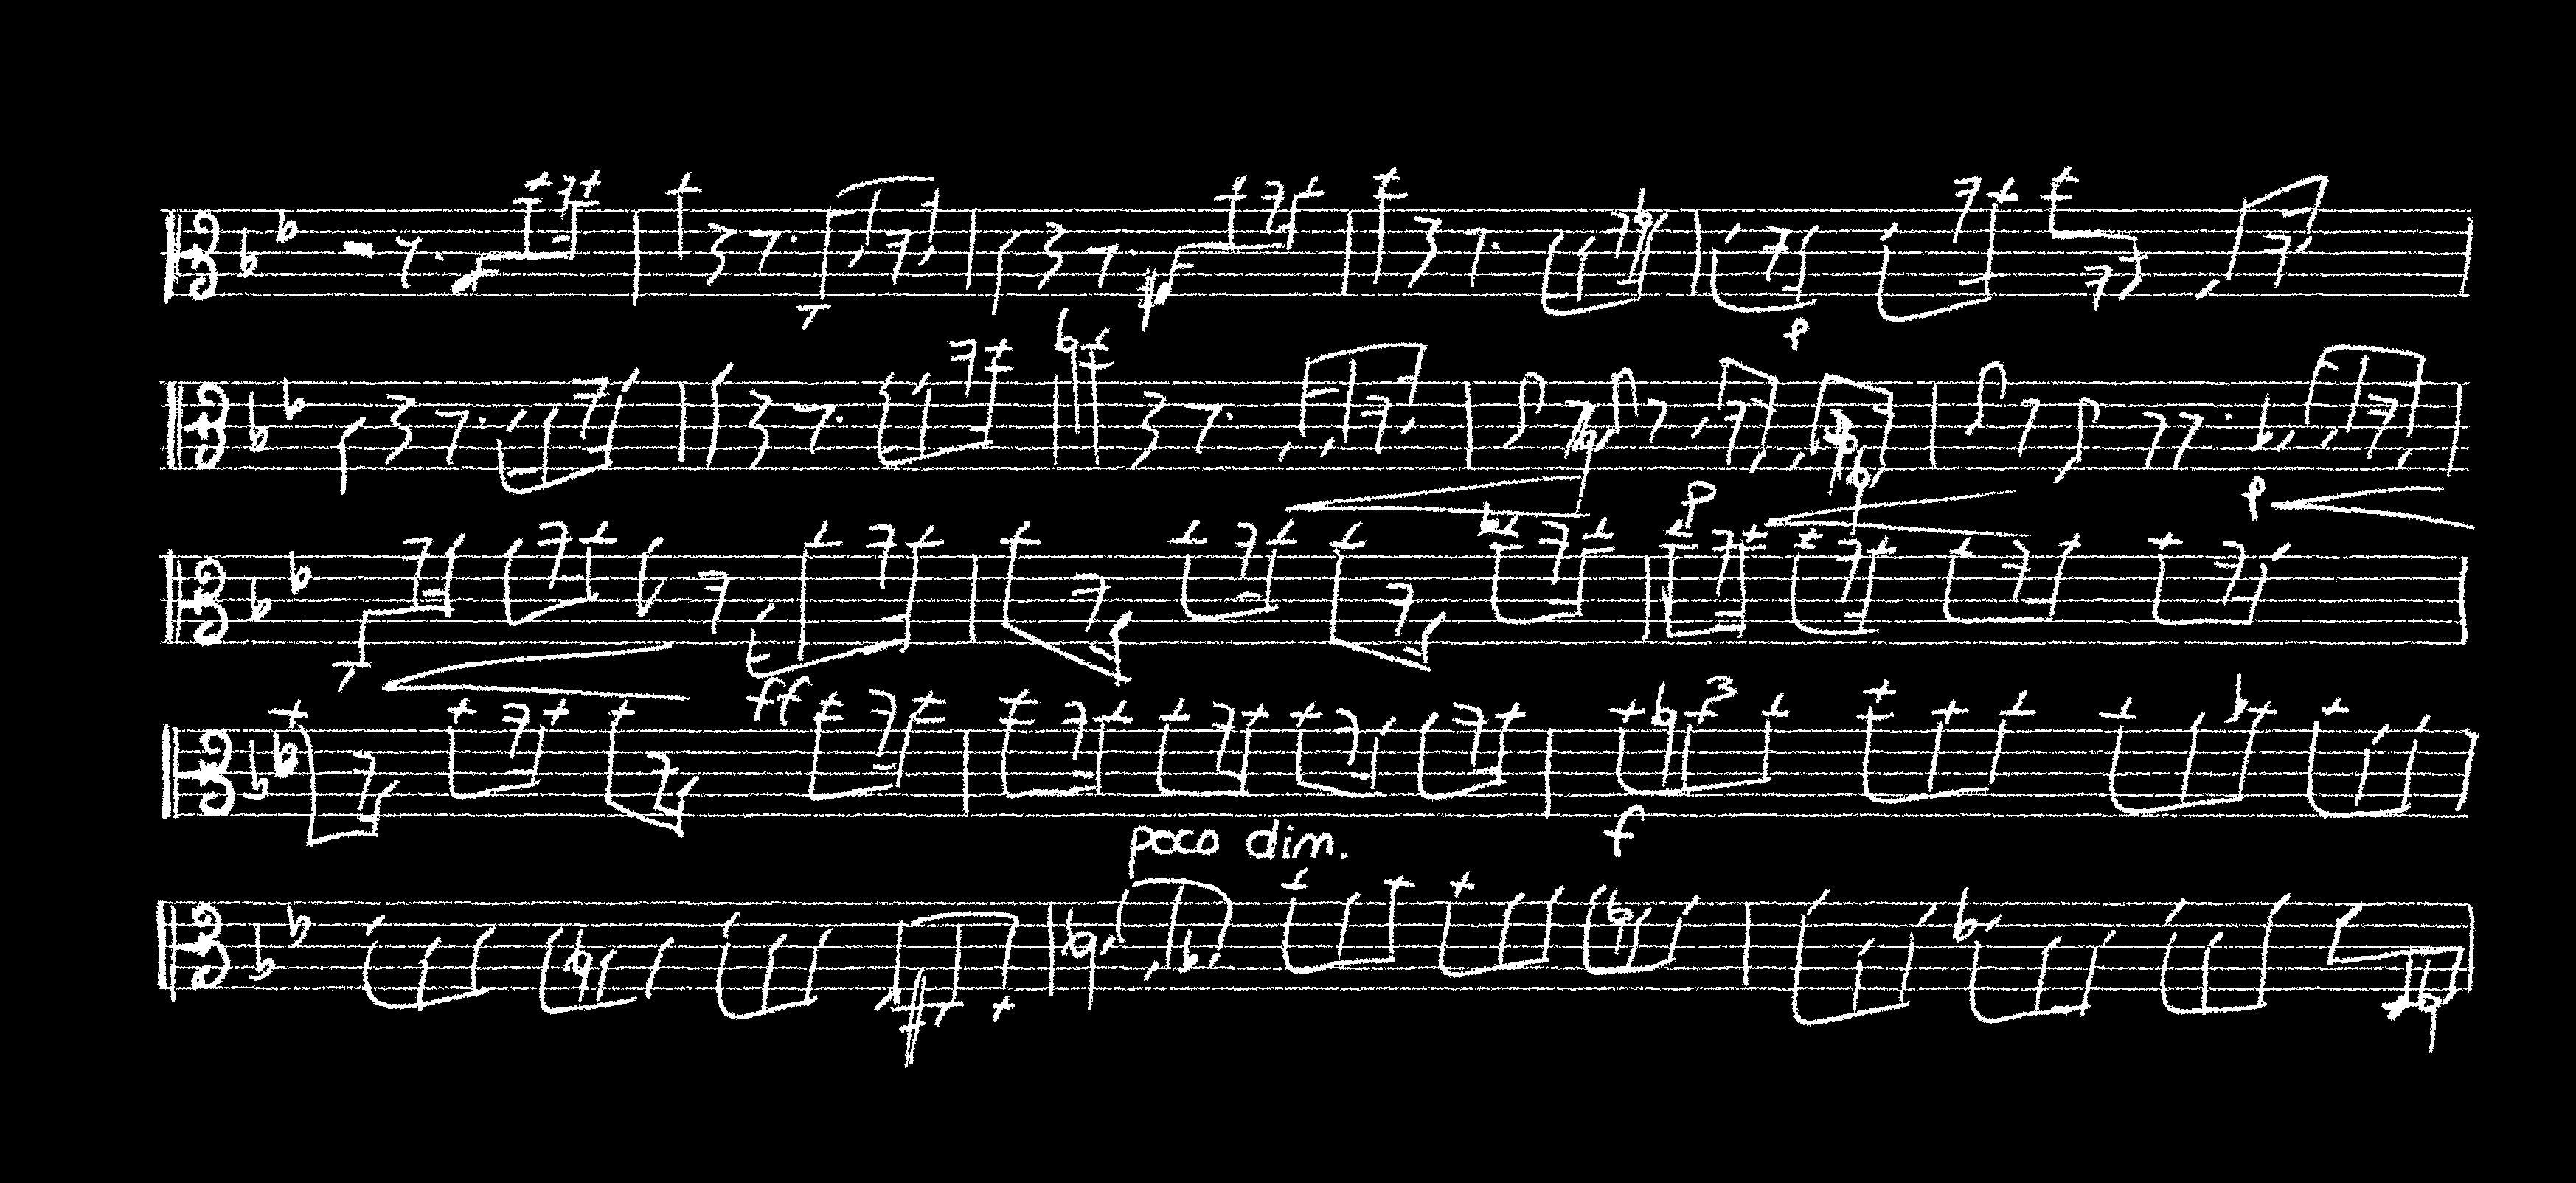 p
p p
ff
3
f
poco dim.